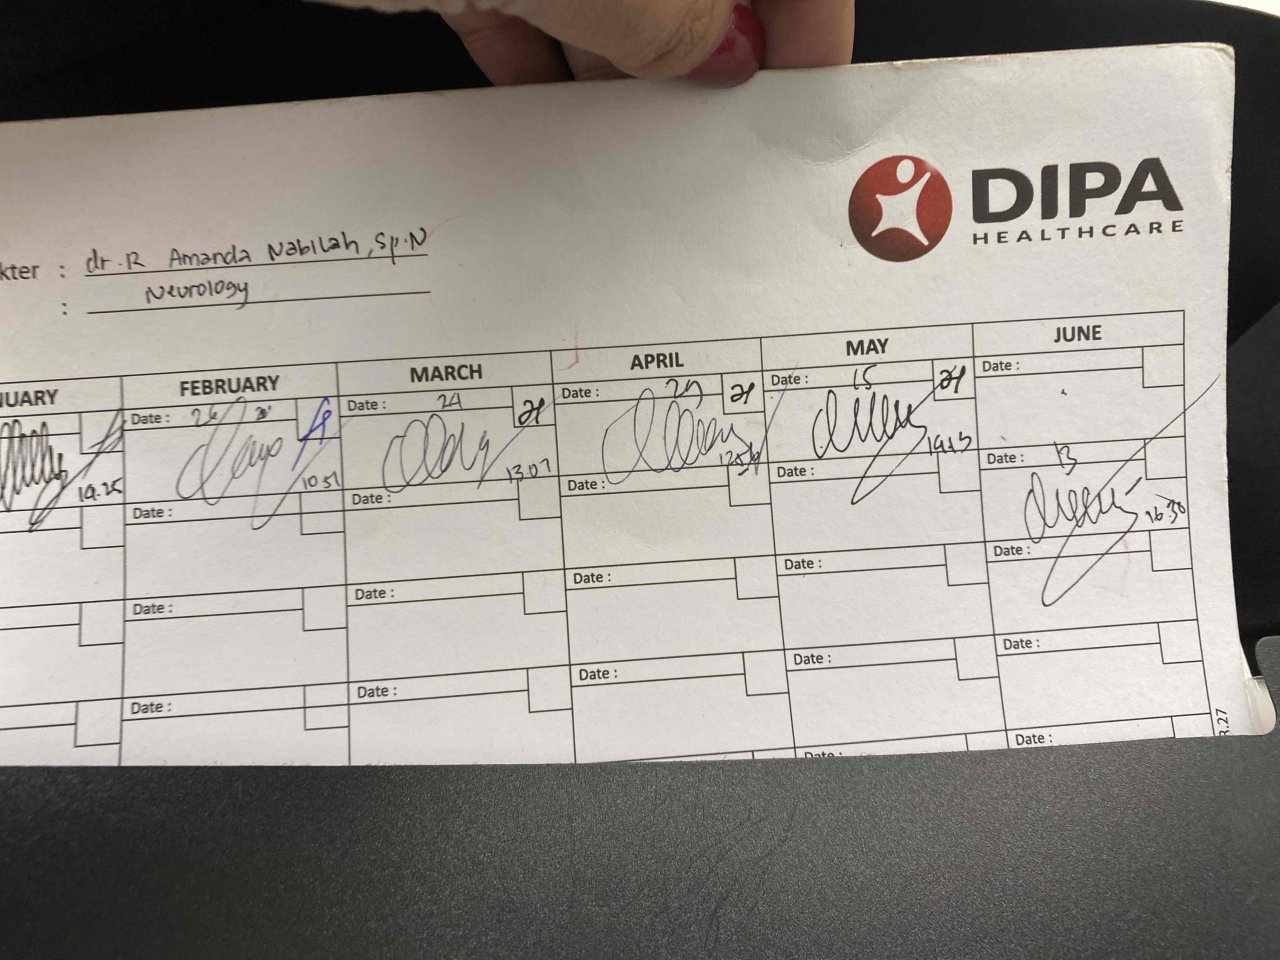 DIPA
HEALTHCARE
kter : dr. R Amanda Nabilah, Sp.N
: Neurology
NUARY FEBRUARY MARCH APRIL MAY JUNE
Date : 26 Date : 24 Date : Date : 15 Date :
19.25 10 51 13.07 19.13
Date : Date : Date : Date : Date : 13
16 30
Date : Date : Date : Date : Date :
Date : Date : Date : Date : Date :
Date : Date :
R.27